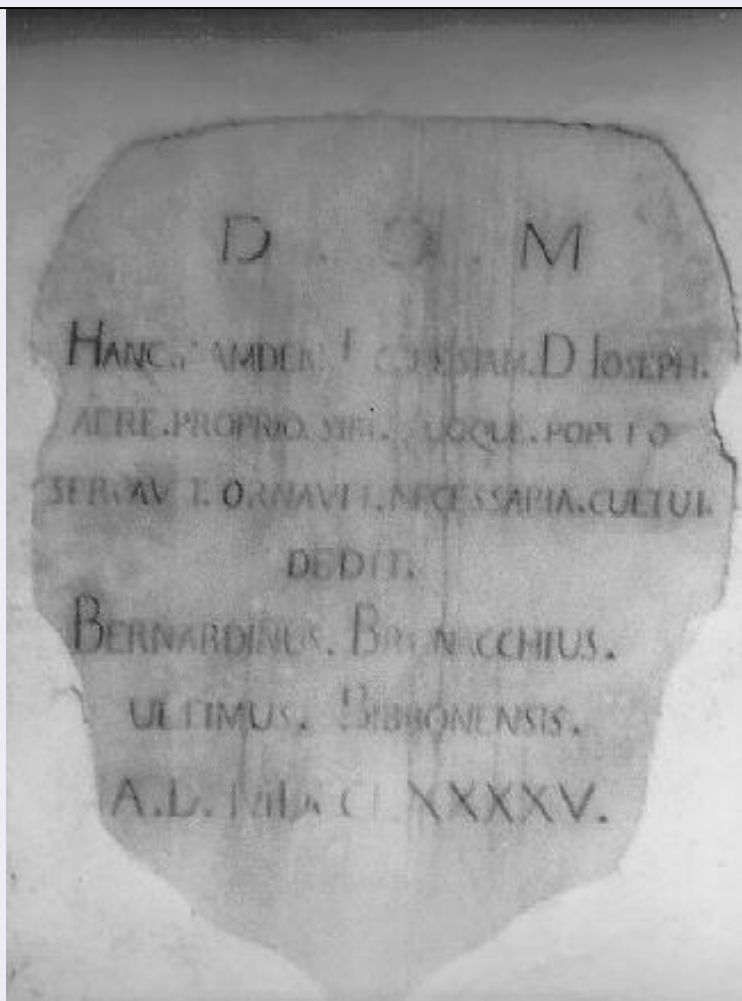 D . O . M
HANC. ECCLESIAM. D IOSEPH.
AERE. PROPRIO. SIBI. POPULO
SERVAVIT. ORNAVIT. NECESSARIA. CULTUI.
DEDIT.
BERNARDINUS. BRUNACCHIUS.
ULTIMUS. BIBBONENSIS.
A.D. MDCCLXXXXV.